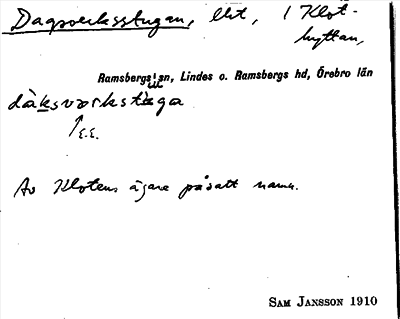 Dagsverksstugan, lht, i Klot-
hyttan,
Ramsbergs sn, Lindes o. Ramsbergs hd, Örebro län
dàksværkstùga
E.E.
Av Klotens ägare påsatt namn.
SAM JANSSON 1910